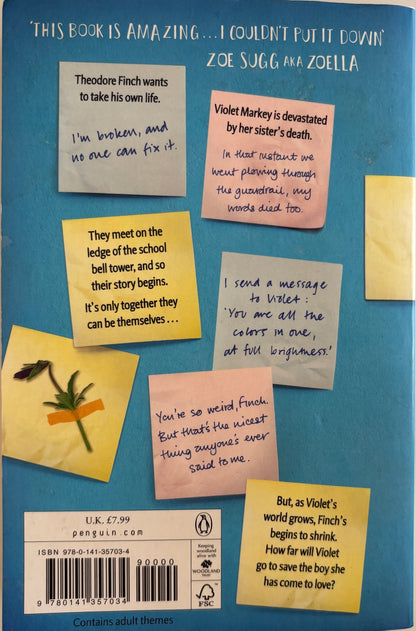 'THIS BOOK IS AMAZING...I COULDN'T PUT IT DOWN'
ZOE SUGG AKA ZOELLA
Theodore Finch wants
to take his own life.
I'm broken, and
no one can fix it.
Violet Markey is devastated
by her sister's death.
In that instant we
went plowing through
the guardrail, my
words died too.
They meet on the
ledge of the school
bell tower, and so
their story begins.
It's only together they
can be themselves...
I send a message
to Violet:
'You are all the
colors in one,
at full brightness.'
You're so weird, Finch.
But that's the nicest
thing anyone's ever
said to me.
But, as Violet's
world grows, Finch's
begins to shrink.
How far will Violet
go to save the boy she
has come to love?
U.K. £7.99
penguin.com
ISBN 978-0-141-35703-4
90000
9 780141 357034
Keeping
woodland
alive with
WOODLAND
TRUST
FSC
Contains adult themes